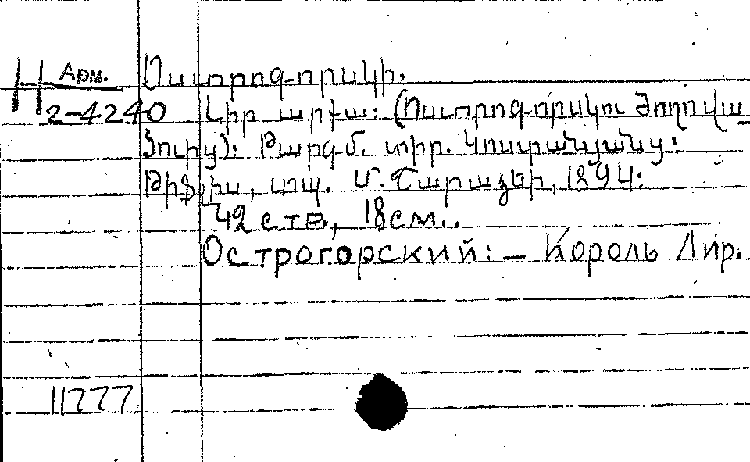 Арм. Օստրոգորսկի.
H 2-4240 Լիր արքա: (Օստրոգորսկու ժողովա
ծուից): Թարգմ. տիր. Կոստանյանց:
Թիֆլիս, տպ. Մ. Շարաձեի, 1894:
42 ств., 18см..
Острогорский: – Король Лир.
11777